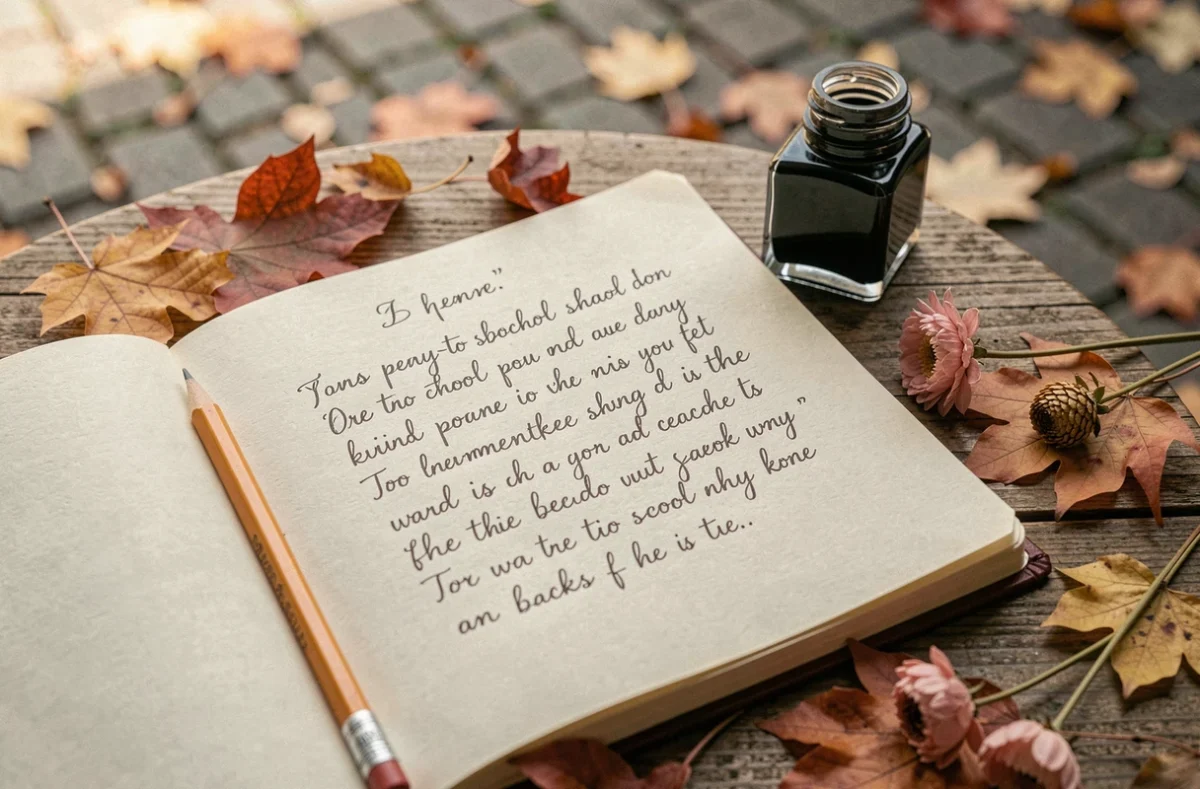 Ɪ henre."
Tans peny-to sbochol shaol don
"Ore tno chool pou nd aue dany
kuind poune io the nis you fet
Too lneummentkee shng d is the
ward is ch a gon ad ceacche ts
the thie becido uut gaeok wny"
Tor wa tre tio scool nhy kone
an backs f he is tie..